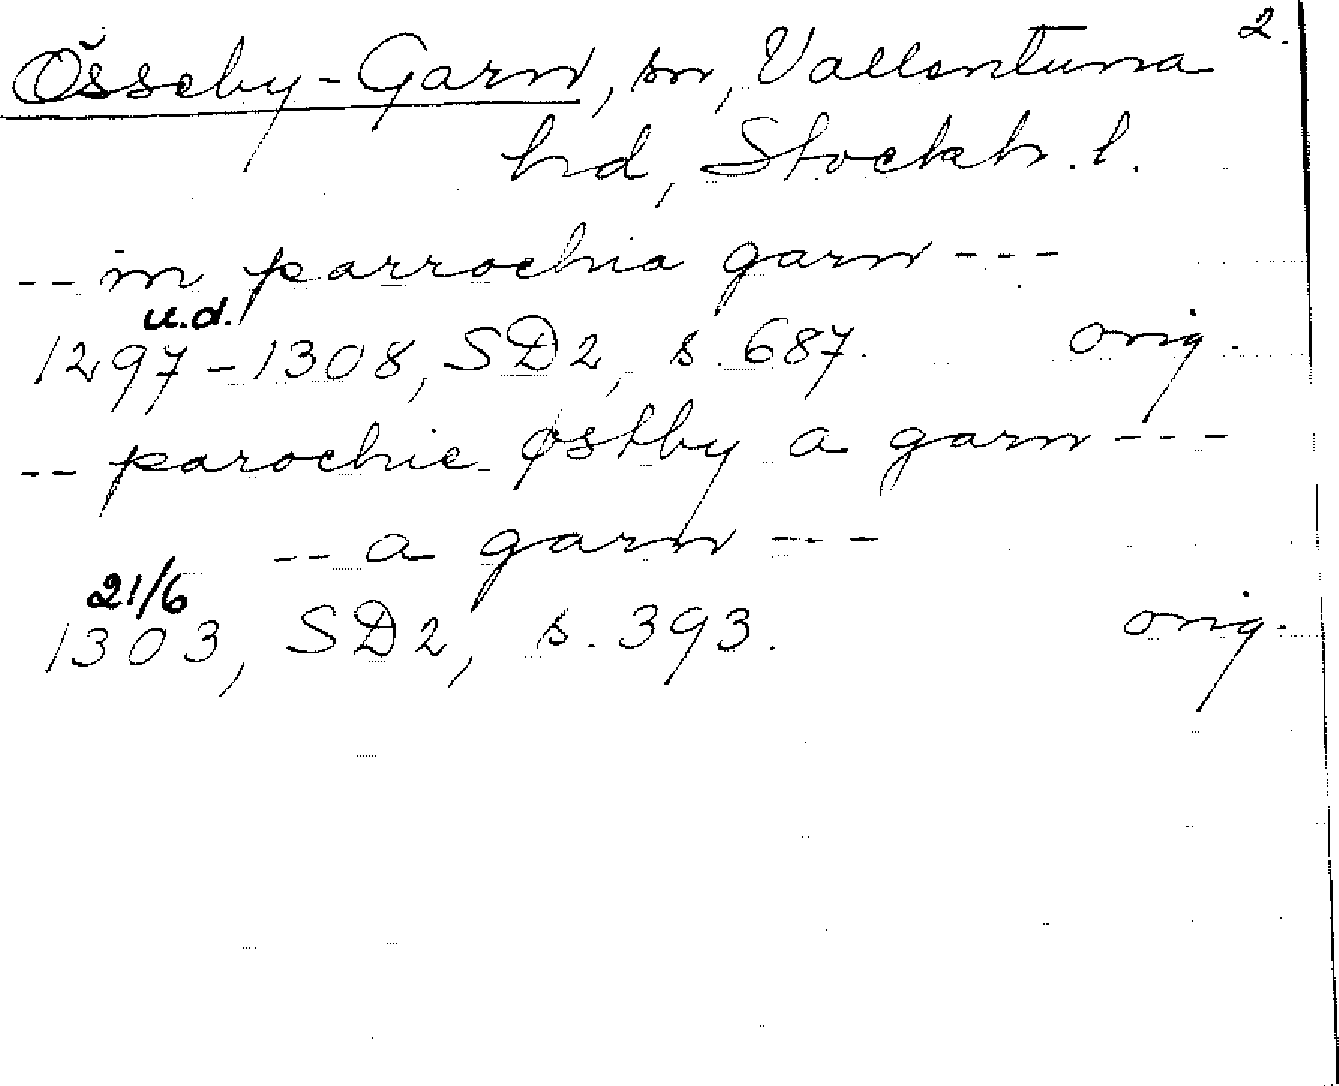 2.
Össeby-Garn, sn, Vallentuna
hd, Stockh. l.
-- in parrochia garn ---
u.d.
1297-1308, SD2, s. 687. orig.
-- parochie østby a garn ---
-- a garn ---
21/6
1303, SD2, s. 393. orig.